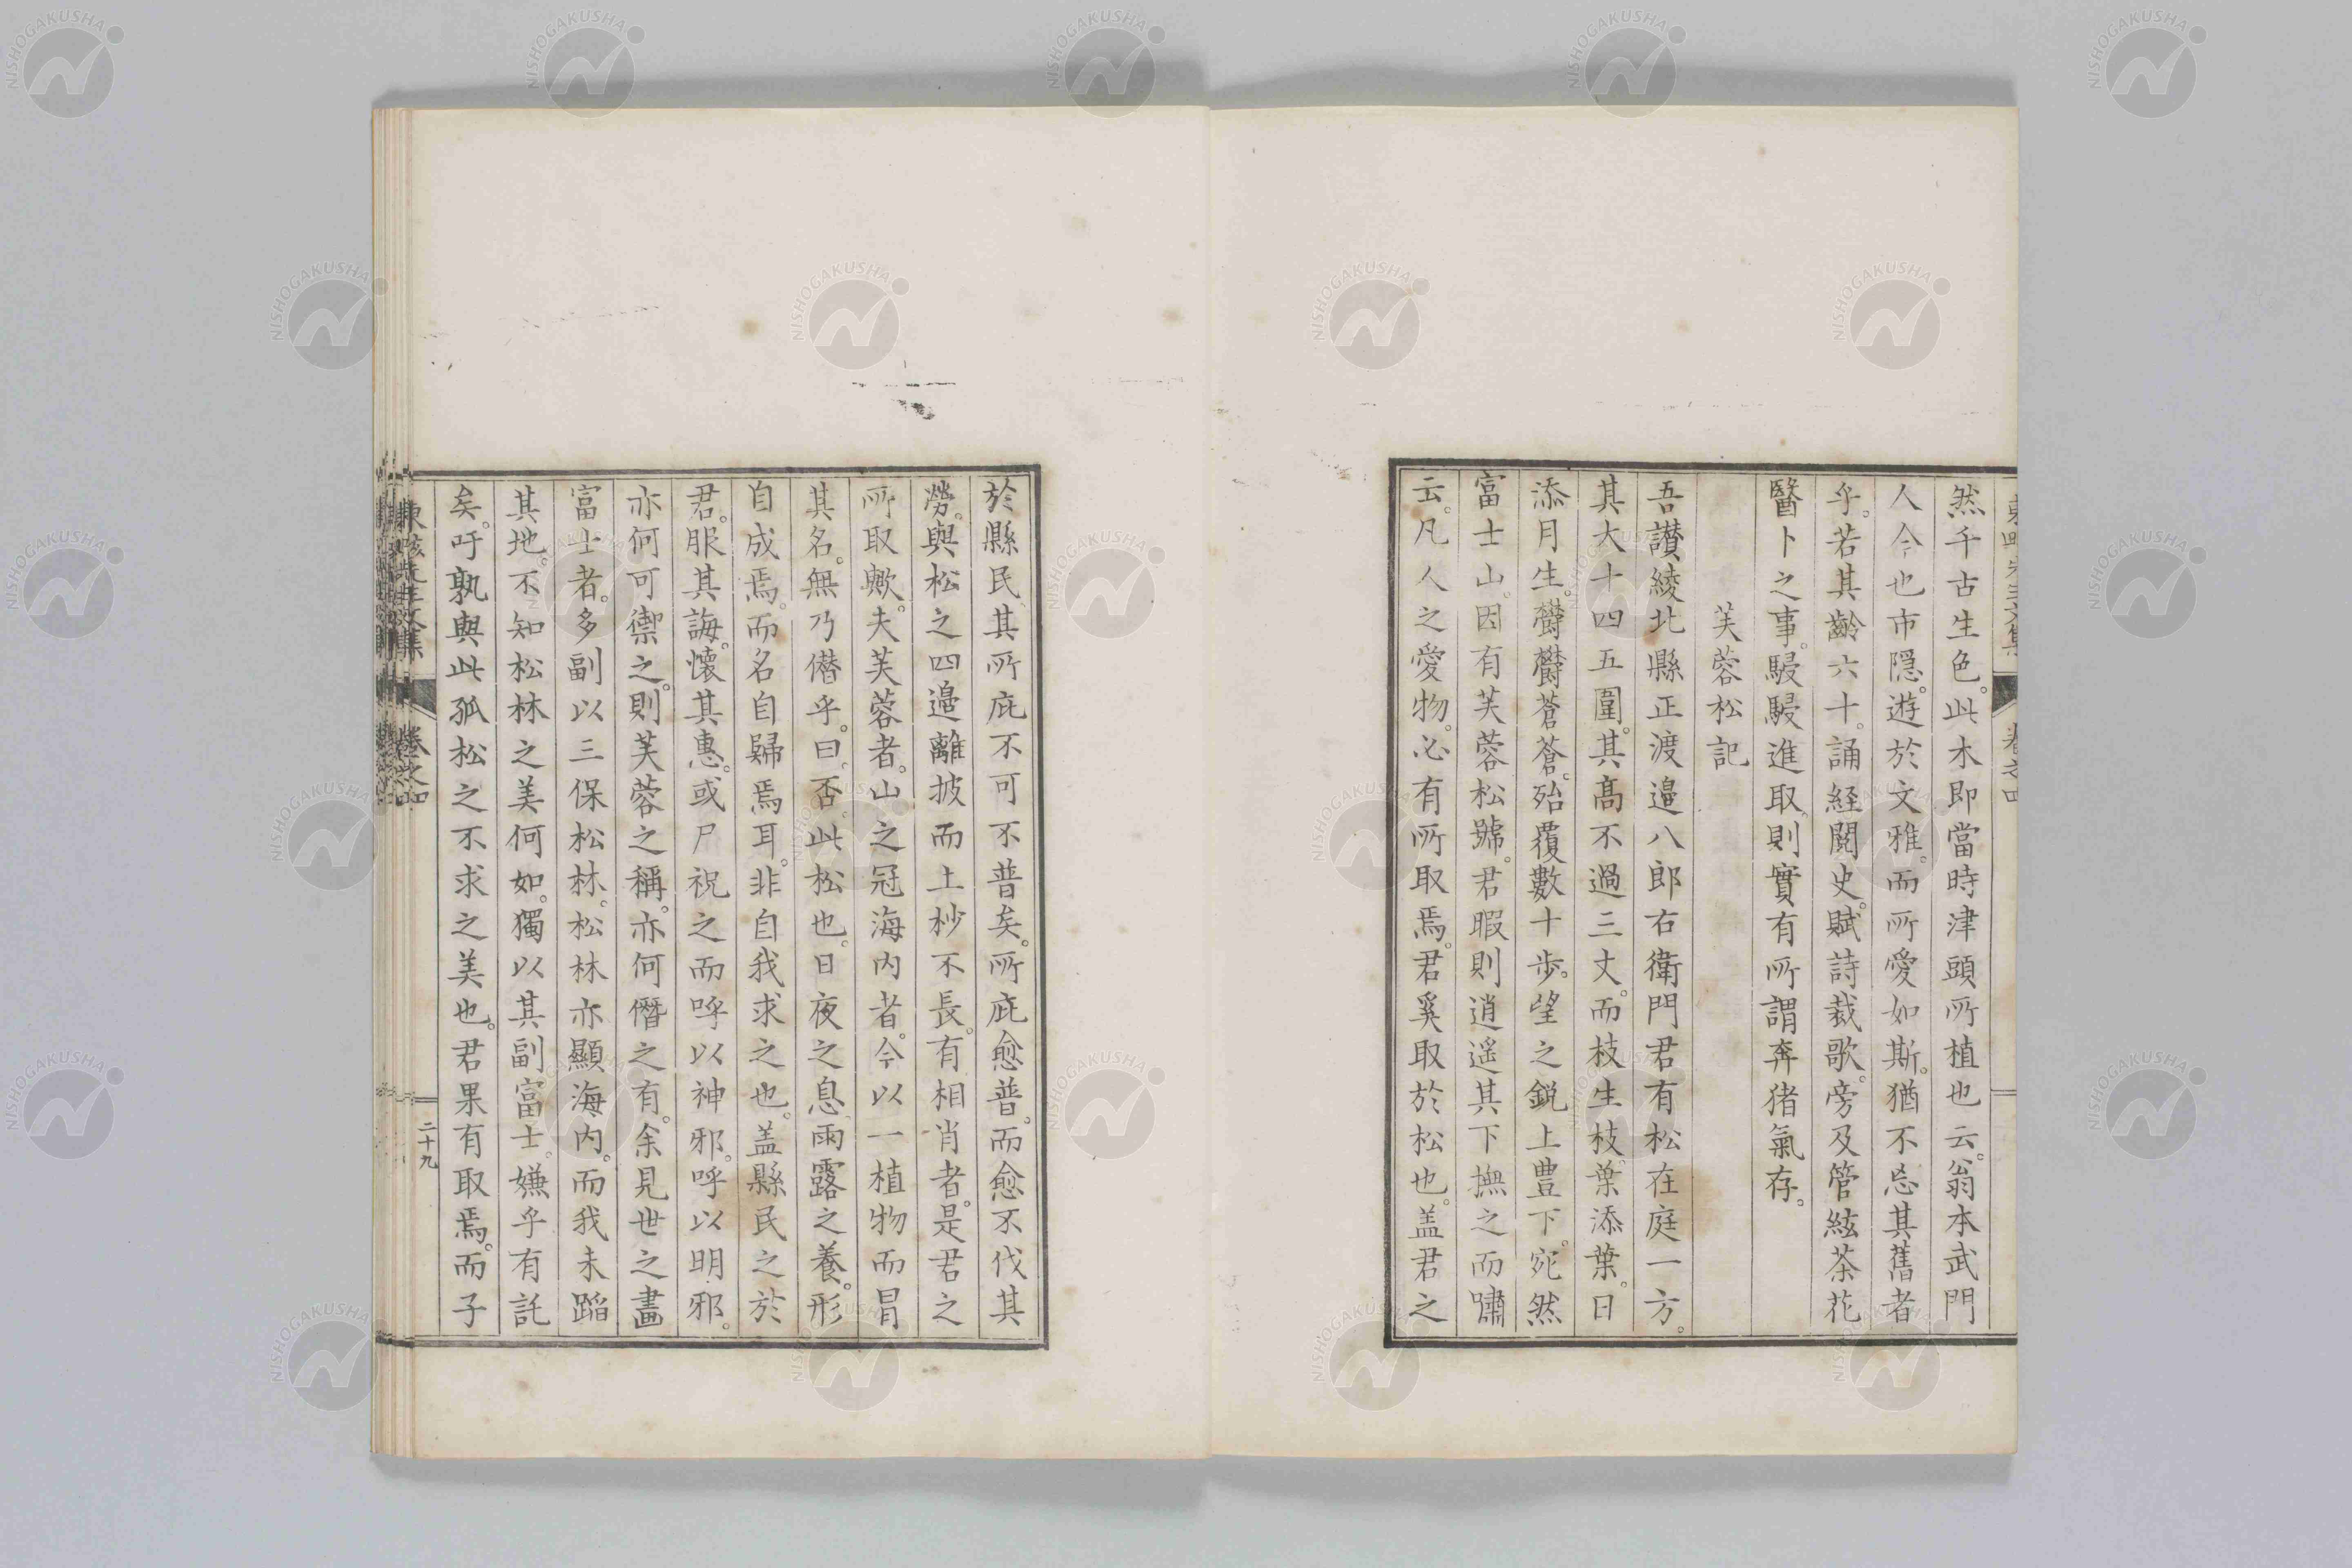 然千古生色。此木即當時津頭所植也云。翁本武門
人今也市隱。遊於文雅。而所愛如斯。猶不忘其舊者
乎。若其齡六十。誦経閱史。賦詩裁歌。旁及管絃茶花
醫卜之事。駸駸進取。則實有所謂奔猪氣存。
芙蓉松記
吾讃綾北縣正渡邉八郎右衛門君有松在庭一方。
其大十四五圍。其髙不過三丈。而枝生枝。葉添葉。日
添月生。欝欝蒼蒼。殆覆數十歩。望之鋭上豊下。宛然
富士山。因有芙蓉松號。君暇則逍遥其下撫之而嘯
云。凡人之愛物。必有所取焉。君奚取於松也。盖君之
於縣民其所庇不可不普矣。所庇愈普。而愈不伐其
勞。與松之四邉離披而土杪不長。有相肖者。是君之
所取歟。夫芙蓉者。山之冠海内者。今以一植物而冒
其名。無乃僭乎。曰。否。此松也。日夜之息。雨露之養。形
自成焉。而名自歸焉耳。非自我求之也。盖縣民之於
君。服其誨。懷其惠。或尸祝之而呼以神邪。呼以明邪。
亦何可禦之。則芙蓉之稱。亦何僭之有。余見世之畫
富士者。多副以三保松林。松林亦顯海内。而我未蹈
其地。不知松林之美何如。獨以其副富士。嫌乎有託
矣。吁孰與此孤松之不求之美也。君果有取焉。而子
卷之四
二十九